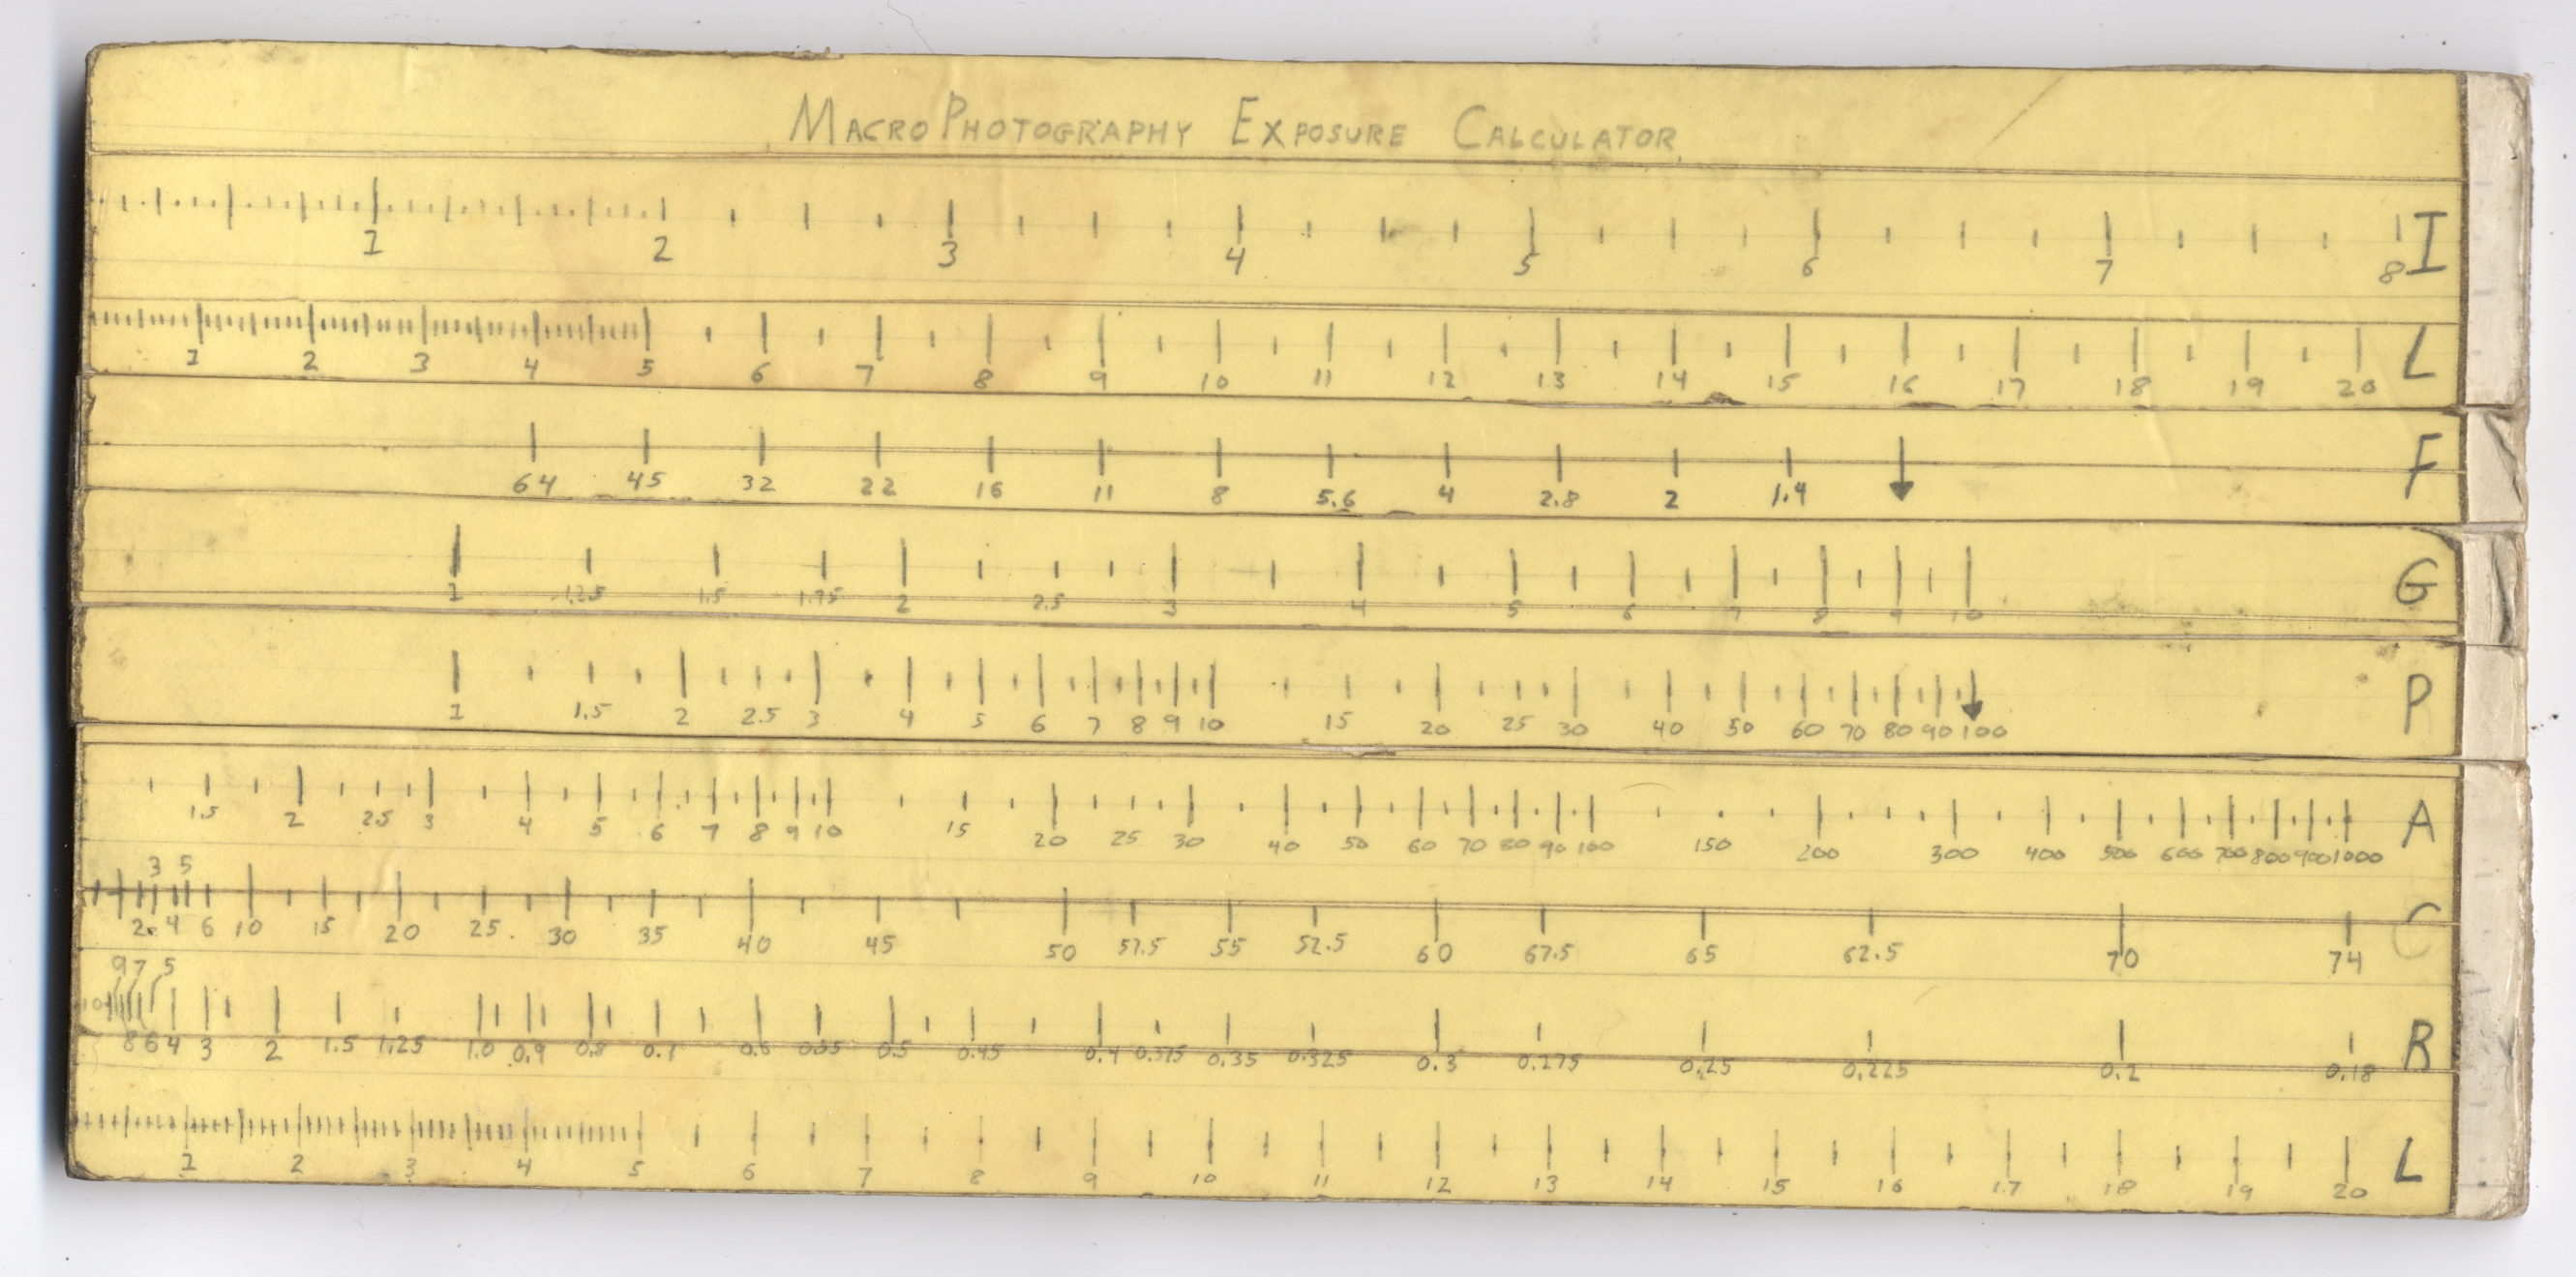 MACRO PHOTOGRAPHY EXPOSURE CALCULATOR
1 2 3 4 5 6 7 8 I
1 2 3 4 5 6 7 8 9 10 11 12 13 14 15 16 17 18 19 20 L
64 45 32 22 16 11 8 5.6 4 2.8 2 1.4 F
1 1.25 1.5 1.75 2 2.5 3 4 5 6 7 8 9 10 G
1 1.5 2 2.5 3 4 5 6 7 8 9 10 15 20 25 30 40 50 60 70 80 90 100 P
1.5 2 2.5 3 4 5 6 7 8 9 10 15 20 25 30 40 50 60 70 80 90 100 150 200 300 400 500 600 700 800 900 1000 A
3 5
2 4 6 10 15 20 25 30 35 40 45 50 57.5 55 52.5 60 67.5 65 62.5 70 74 C
9 7 5
10
8 6 4 3 2 1.5 1.25 1.0 0.9 0.8 0.7 0.6 0.55 0.5 0.45 0.4 0.375 0.35 0.325 0.3 0.275 0.25 0.225 0.2 0.18 B
1 2 3 4 5 6 7 8 9 10 11 12 13 14 15 16 17 18 19 20 L